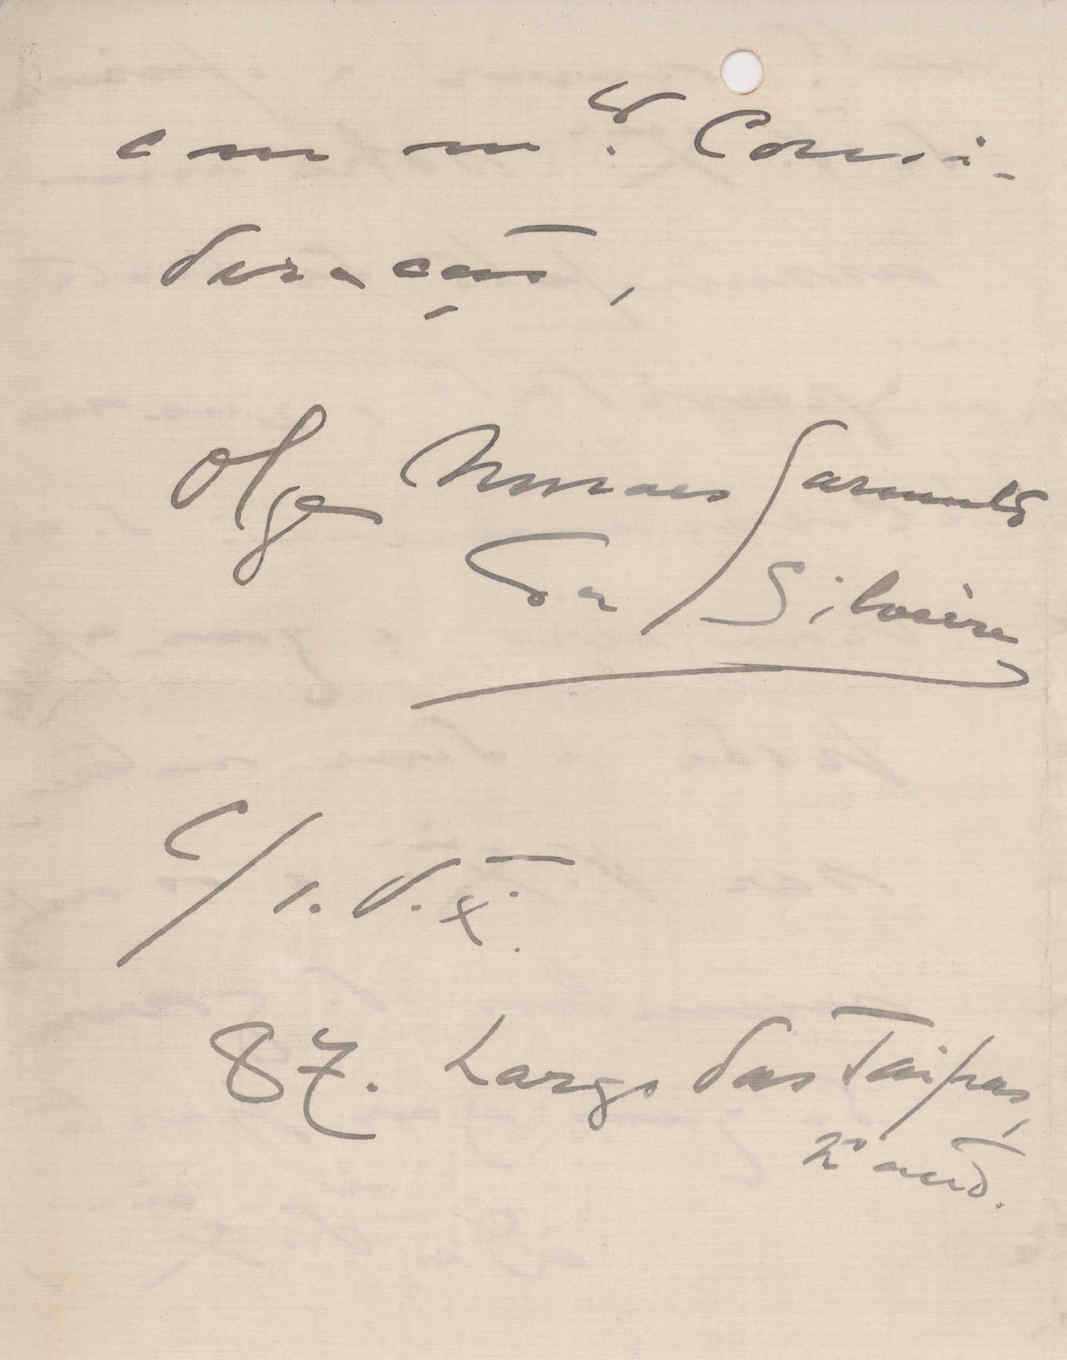 com m.ta Consi-
deração,
Olga Moraes Sarmento
da Silveira
C/ s. d. x.
87. Largo das Taipas,
2º and.